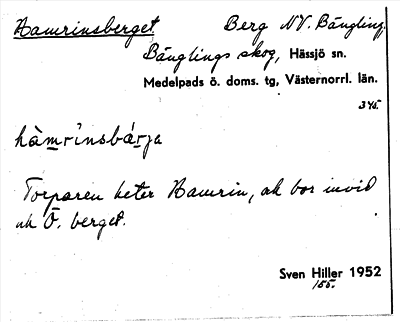 Hamrinsberget Berg NV. Bängling.
Bänglings skog, Hässjö sn.
Medelpads ö. doms. tg, Västernorrl. län.
345.
hàmrìnsbárja
Torparen heter Hamrin, ok bor invid
ok Ö. berget.
Sven Hiller 1952
155.